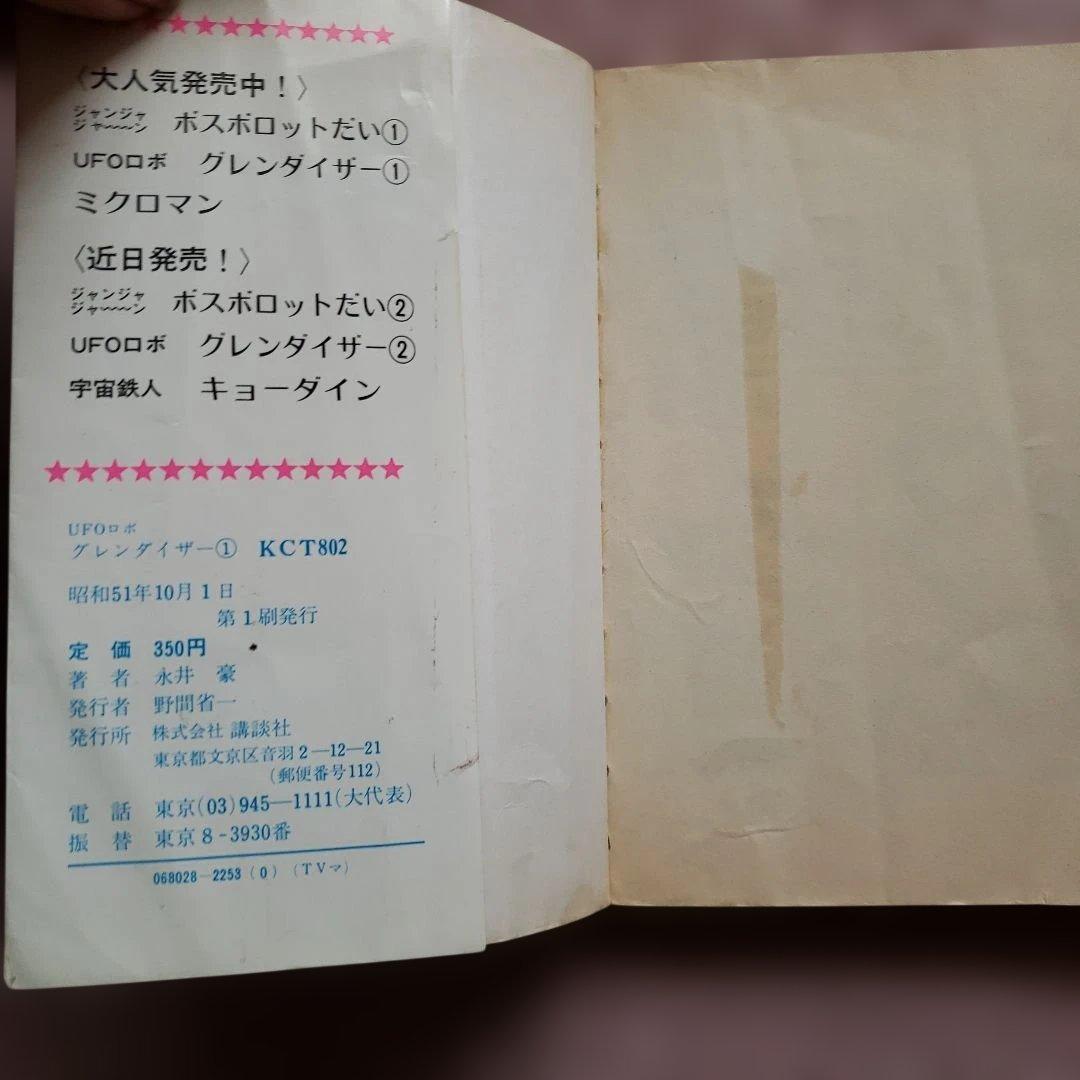 〈大人気発売中！〉
ジャンジャジャ〜〜〜ン ボスボロットだい①
UFOロボ グレンダイザー①
ミクロマン
〈近日発売！〉
ジャンジャジャ〜〜〜ン ボスボロットだい②
UFOロボ グレンダイザー②
宇宙鉄人 キョーダイン
UFOロボ
グレンダイザー① KCT802
昭和51年10月1日
第1刷発行
定 価 350円
著 者 永井 豪
発行者 野間省一
発行所 株式会社 講談社
東京都文京区音羽2―12―21
(郵便番号112)
電 話 東京(03)945―1111(大代表)
振 替 東京8-3930番
068028-2253(0)(TVマ)